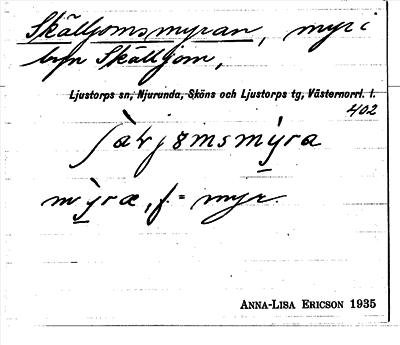 Skälljomsmyran, myr i
byn Skälljom,
Ljustorps sn, Njurunda, Sköns och Ljustorps tg, Västernorrl. l.
402
myræ, f. = myr.
ANNA-LISA ERICSON 1935